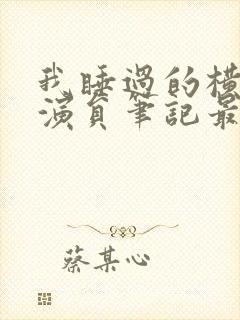 我睡過的橫
演員筆記最
蔡某心